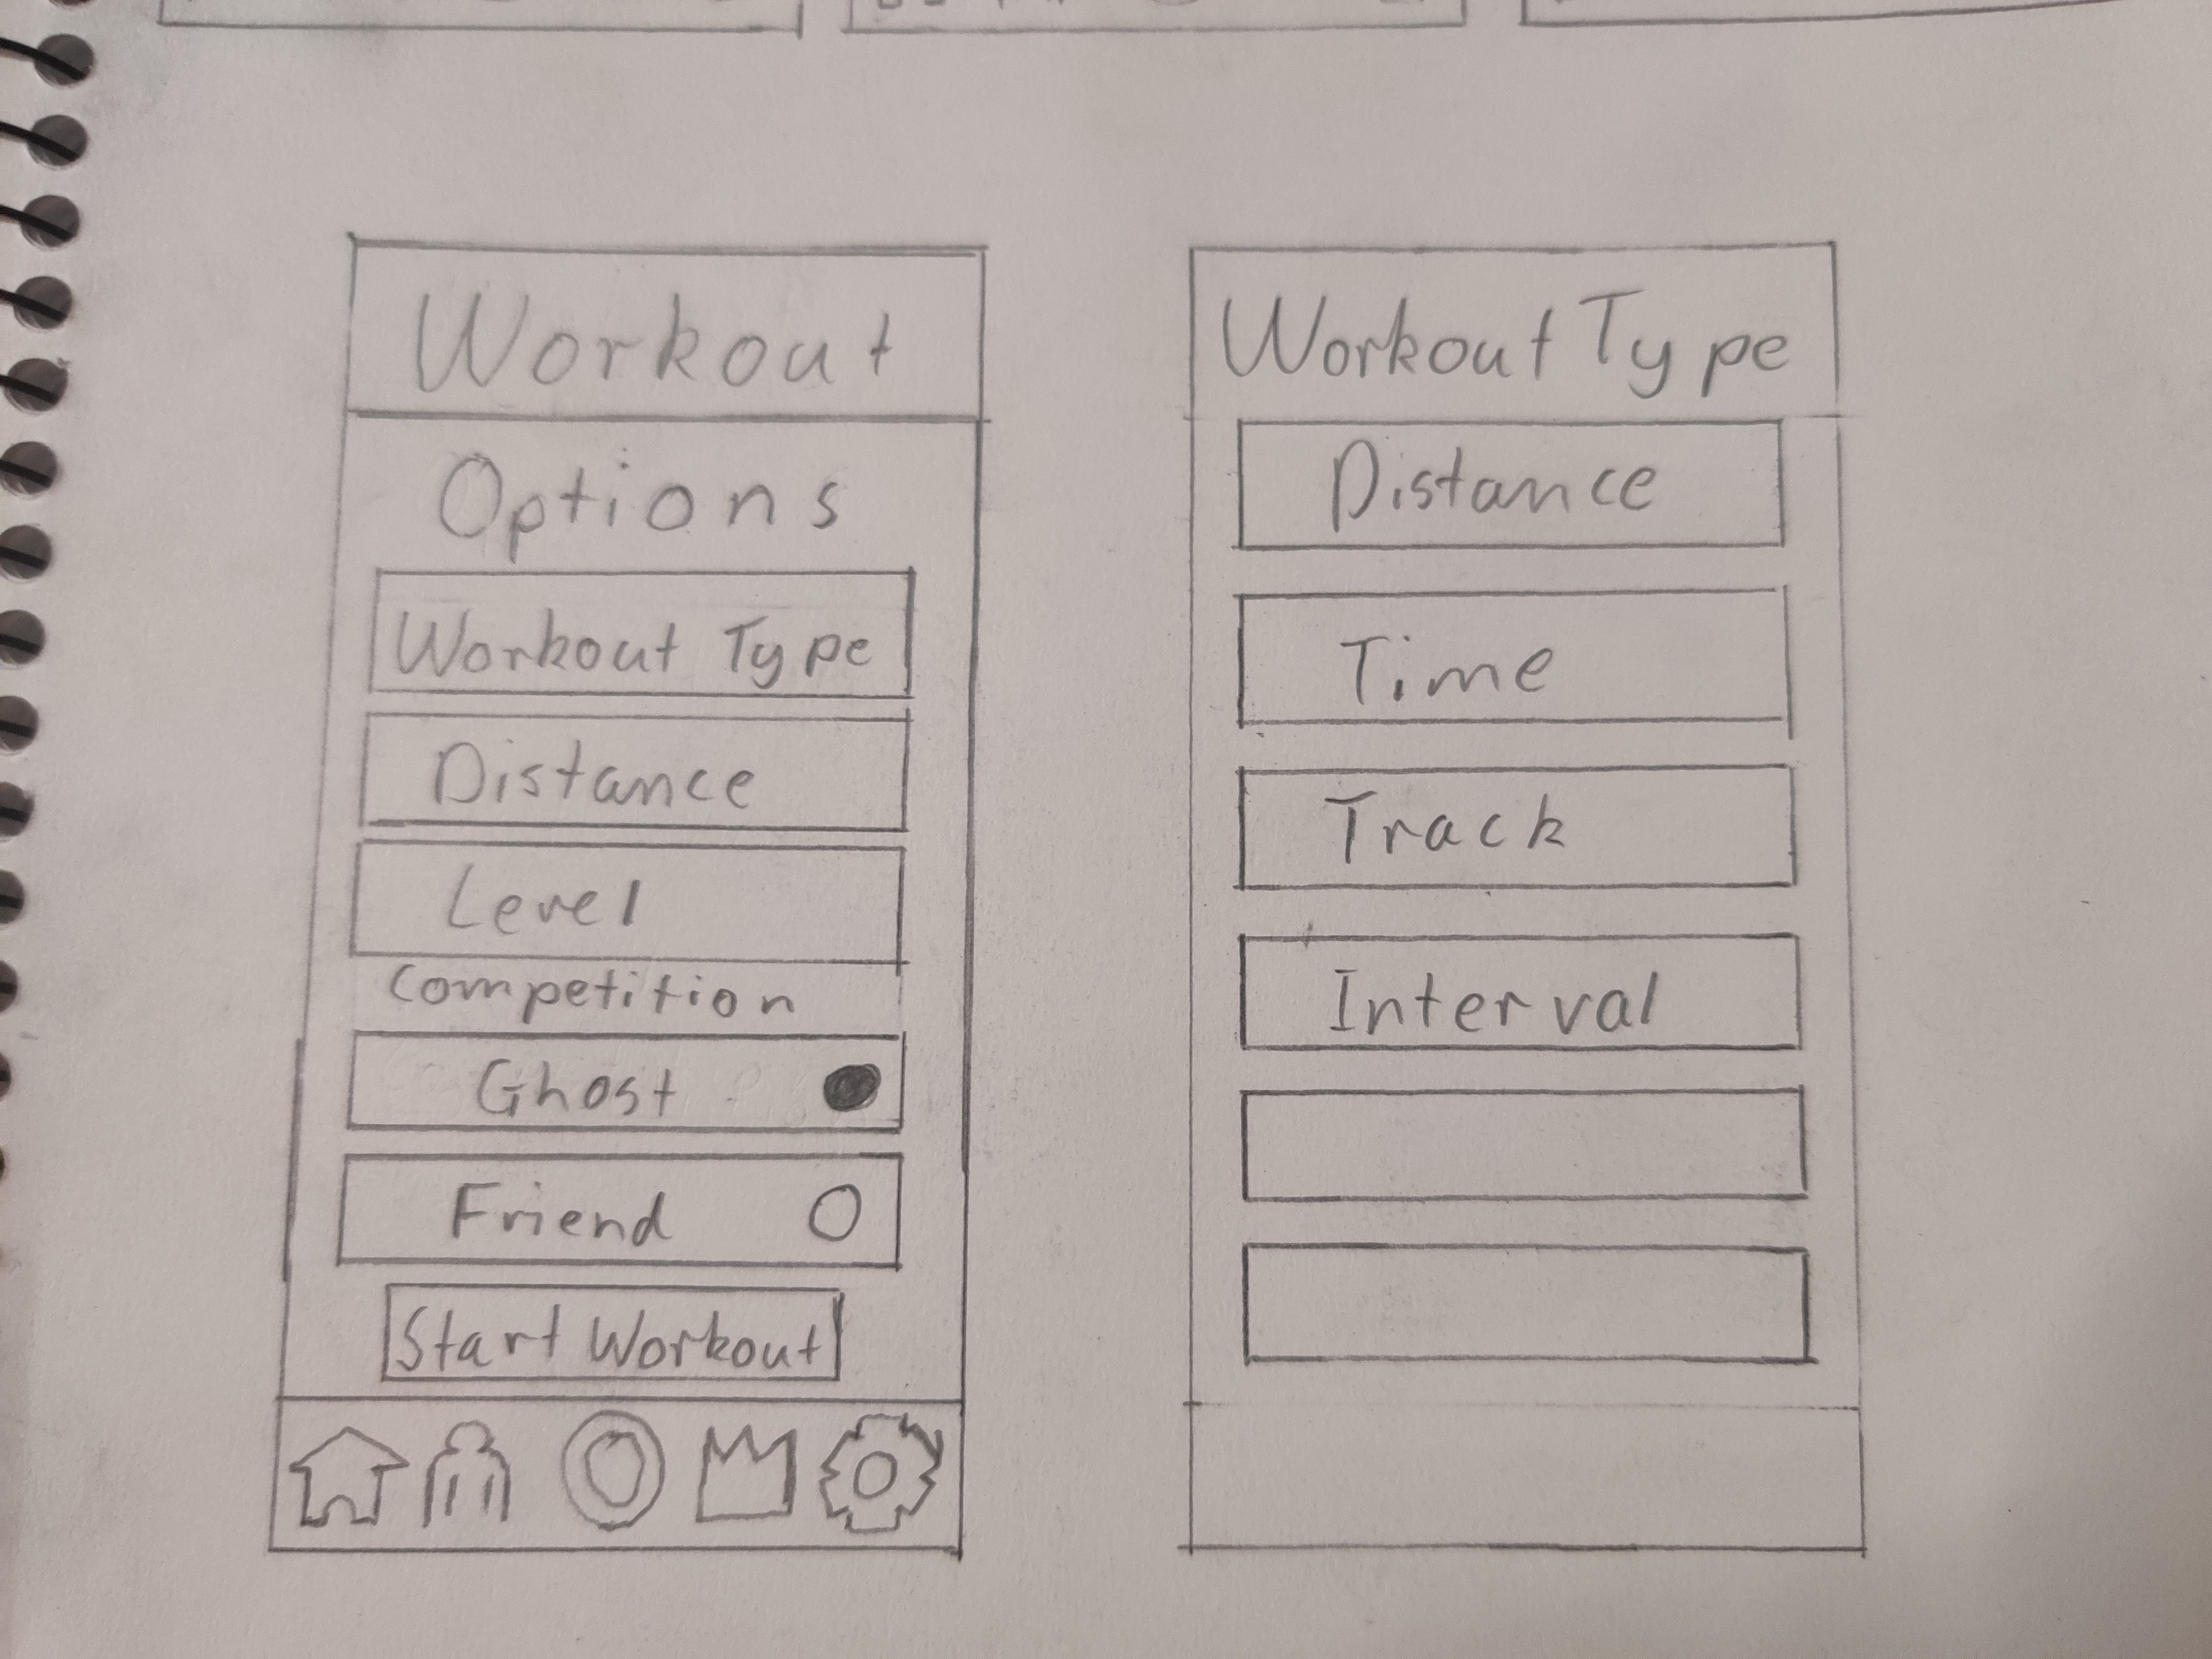 Workout
Options
Workout Type
Distance
Level
Competition
Ghost
Friend
Start Workout
Workout Type
Distance
Time
Track
Interval